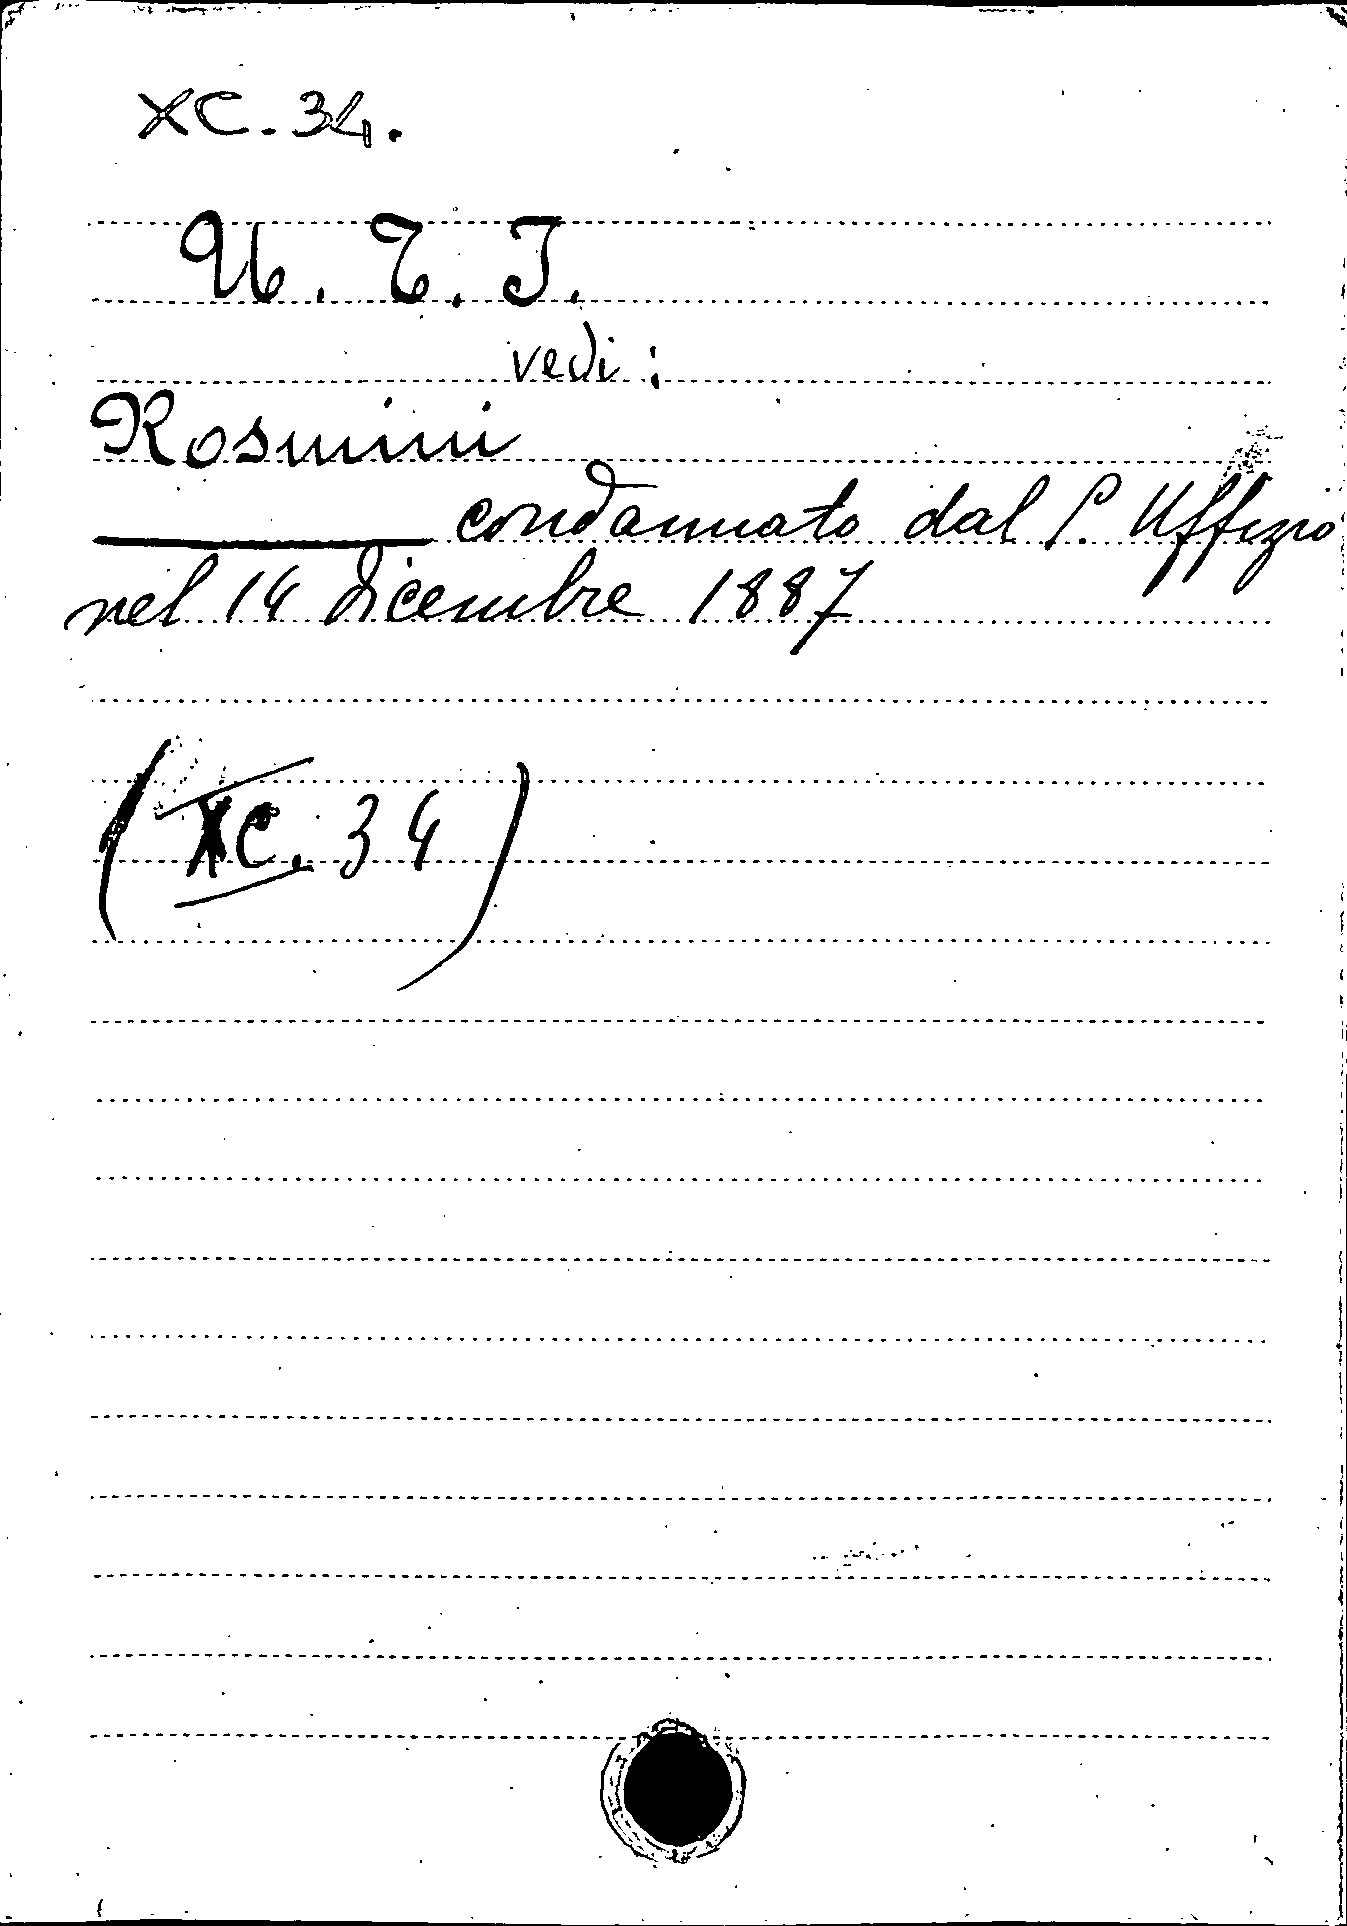 XC. 34.
U. T. I.
vedi:
Rosmini
condannato dal S. Uffizio
nel 14 dicembre 1887
(XC. 34)